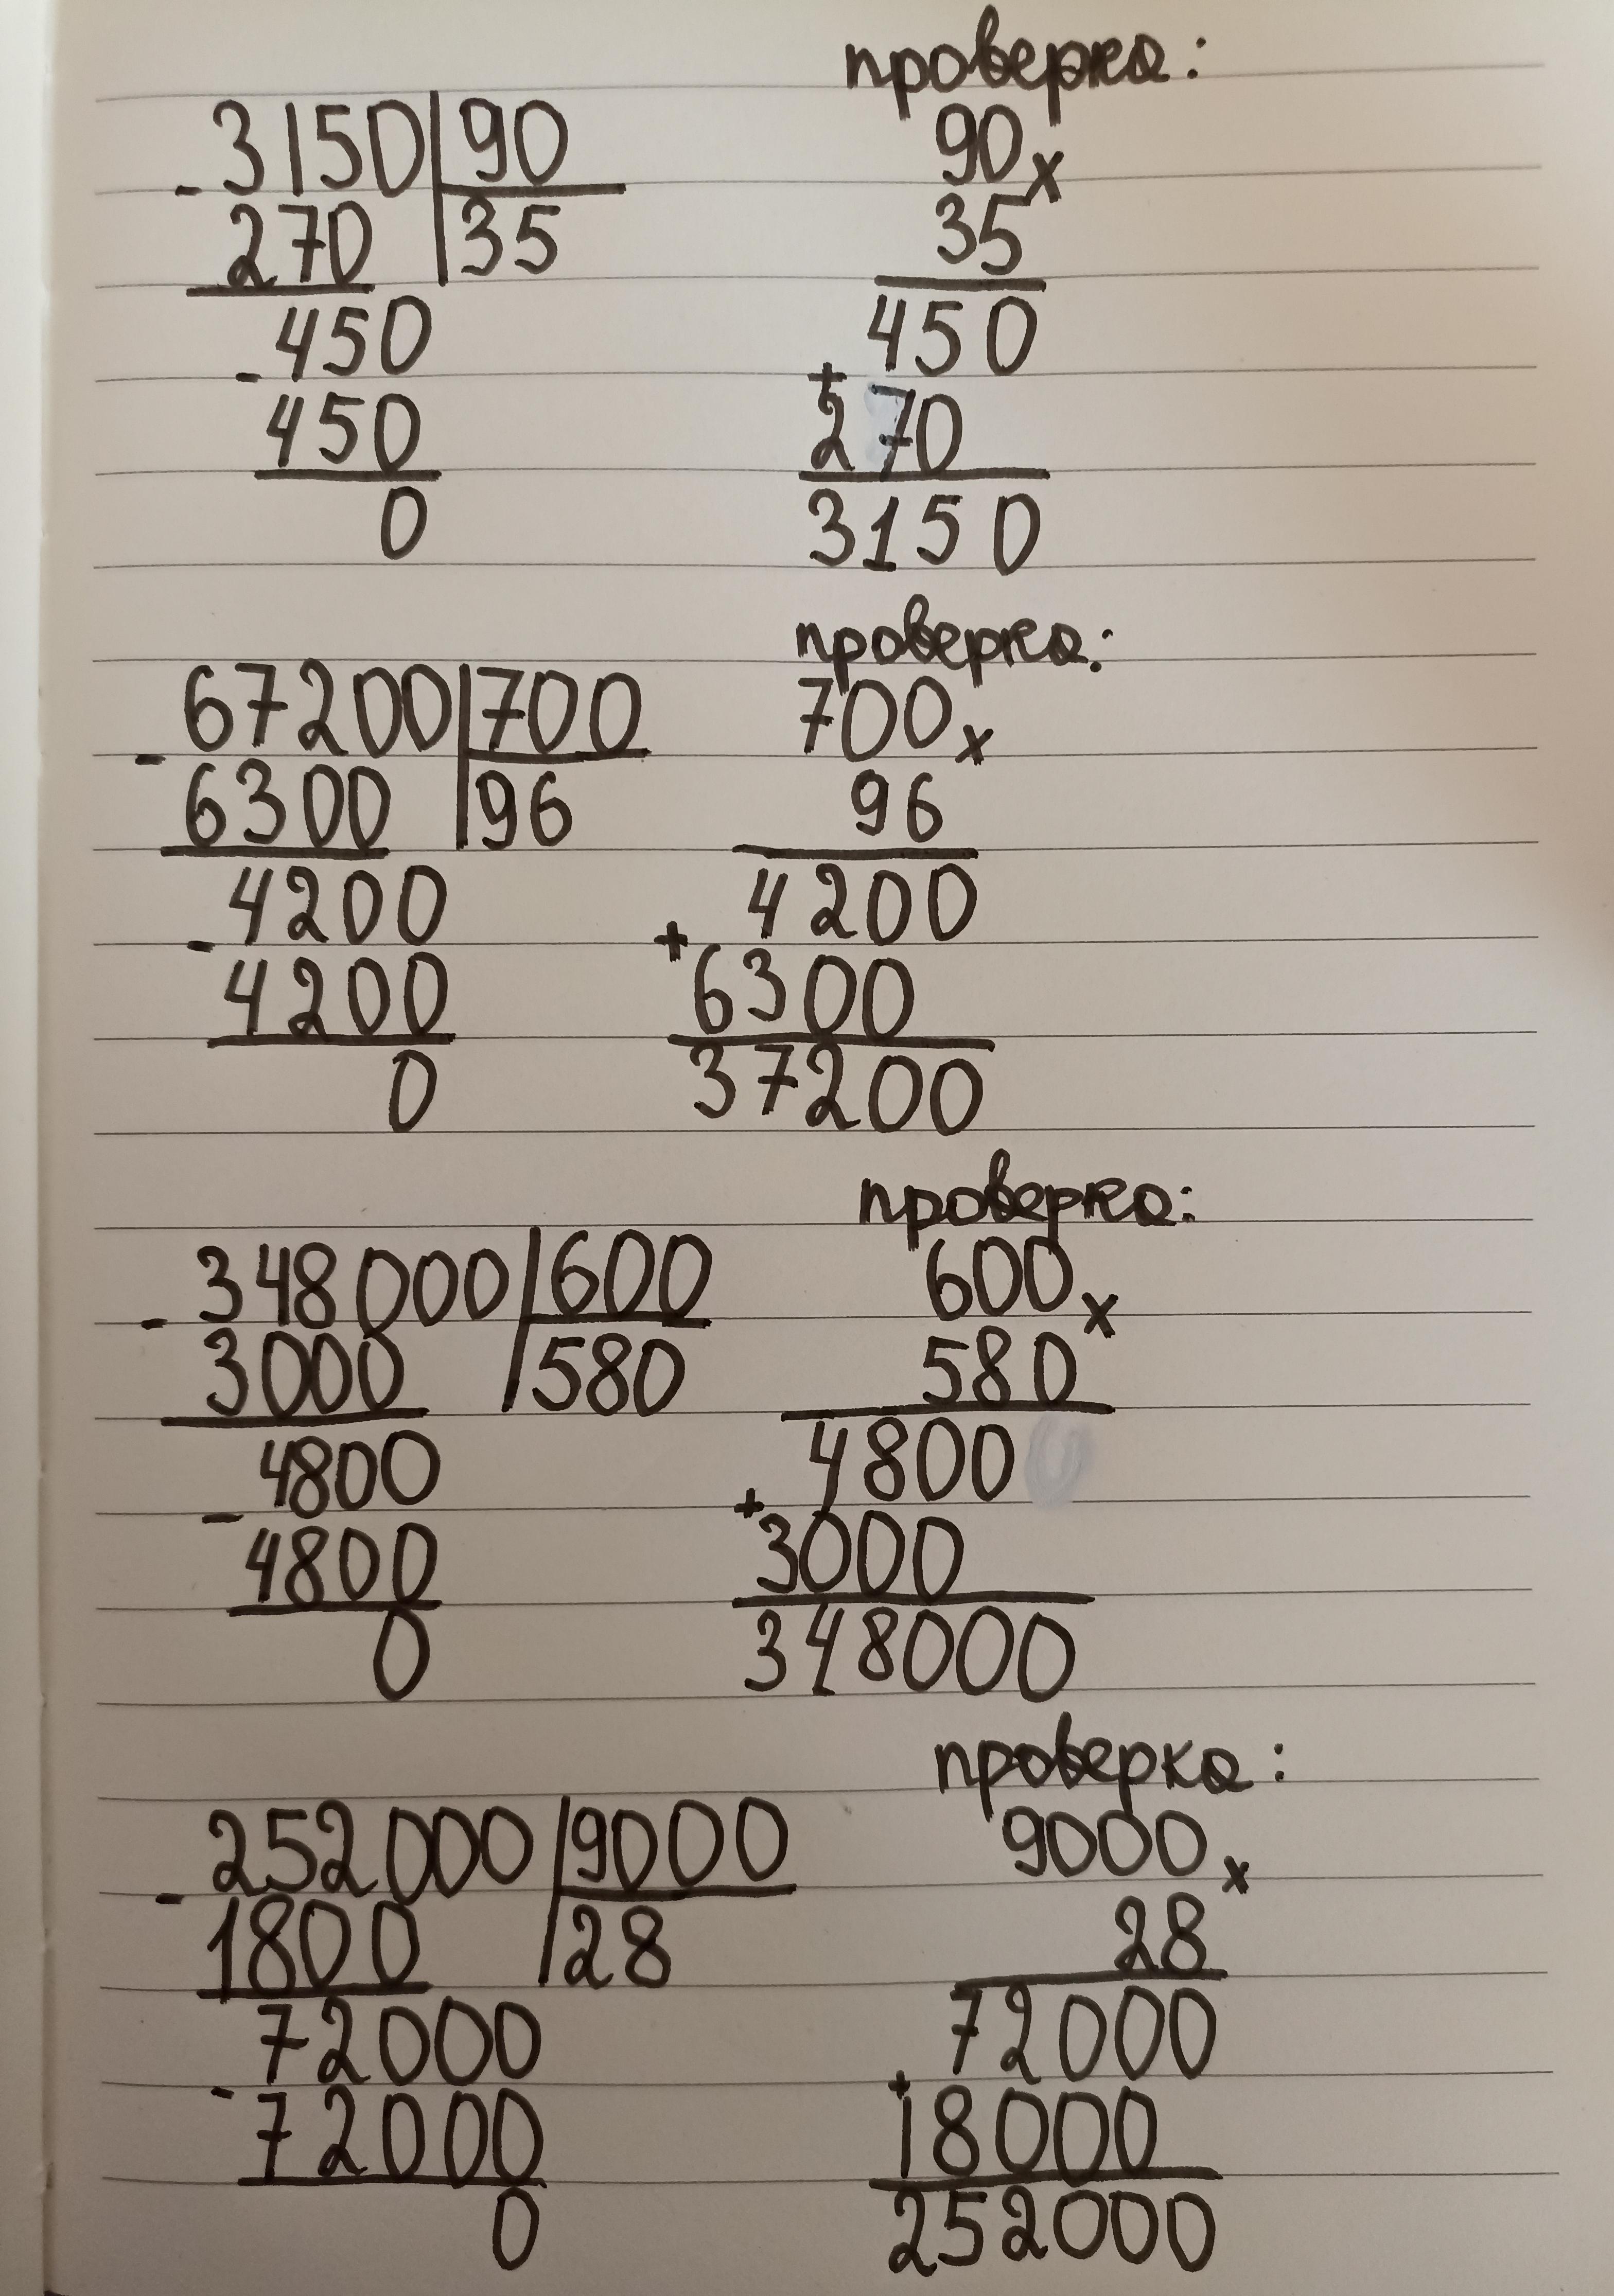 проверка:
3150 90 90 x
- 270 35 35
450 450
- 450 + 270
0 3150
проверка:
67200 700 700 x
- 6300 96 96
4200 4200
- 4200 + 6300
0 37200
проверка:
348000 600 600 x
- 3000 580 580
4800 4800
- 4800 + 3000
0 348000
проверка:
252000 9000 9000 x
- 1800 28 28
72000 72000
- 72000 + 18000
0 252000